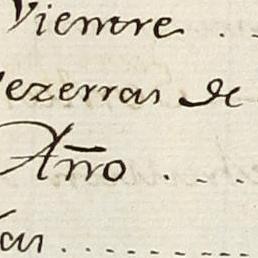 Vientre . .
ezerras de
Año . . . .
as . . . . . . . .